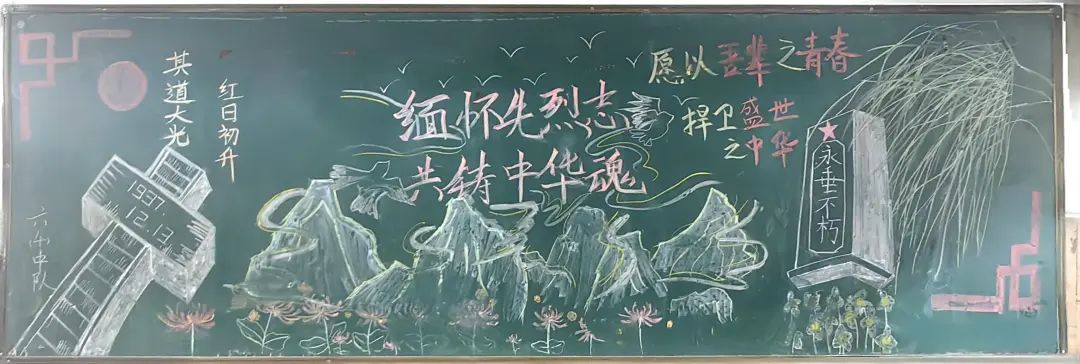 缅怀先烈志
共铸中华魂
红日初升
其道大光
1937.
12.13
愿以吾辈之青春
捍卫盛世
之中华
永垂不朽
中队